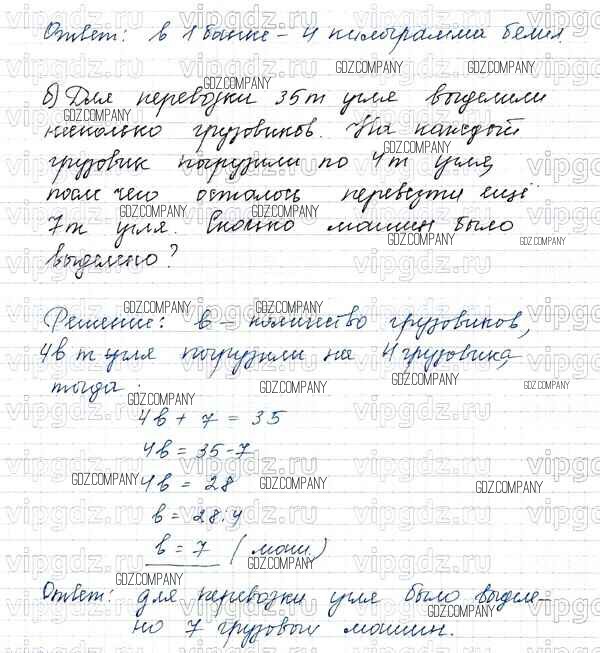 Ответ: в 1 банке - 4 килограмма белил.
б) Для перевозки 35 т угля выделили
несколько грузовиков. На каждый
грузовик погрузили по 4 т угля,
после чего осталось перевезти ещё
7 т угля. Сколько машин было
выделено?
Решение: в - количество грузовиков,
4в т угля погрузили на 4 грузовика,
тогда:
4в + 7 = 35
4в = 35-7
4в = 28
в = 28:4
в = 7 (маш.)
Ответ: для перевозки угля было выделе-
но 7 грузовых машин.
vipgdz.ru
GDZ.COMPANY